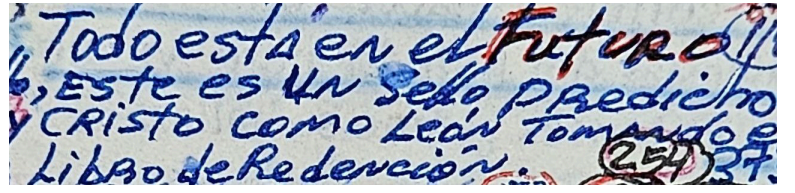 Todo esta en el Futuro
, Este es un Sello predicho
y Cristo como León Tomando e
Libro de Redención. 254 37.